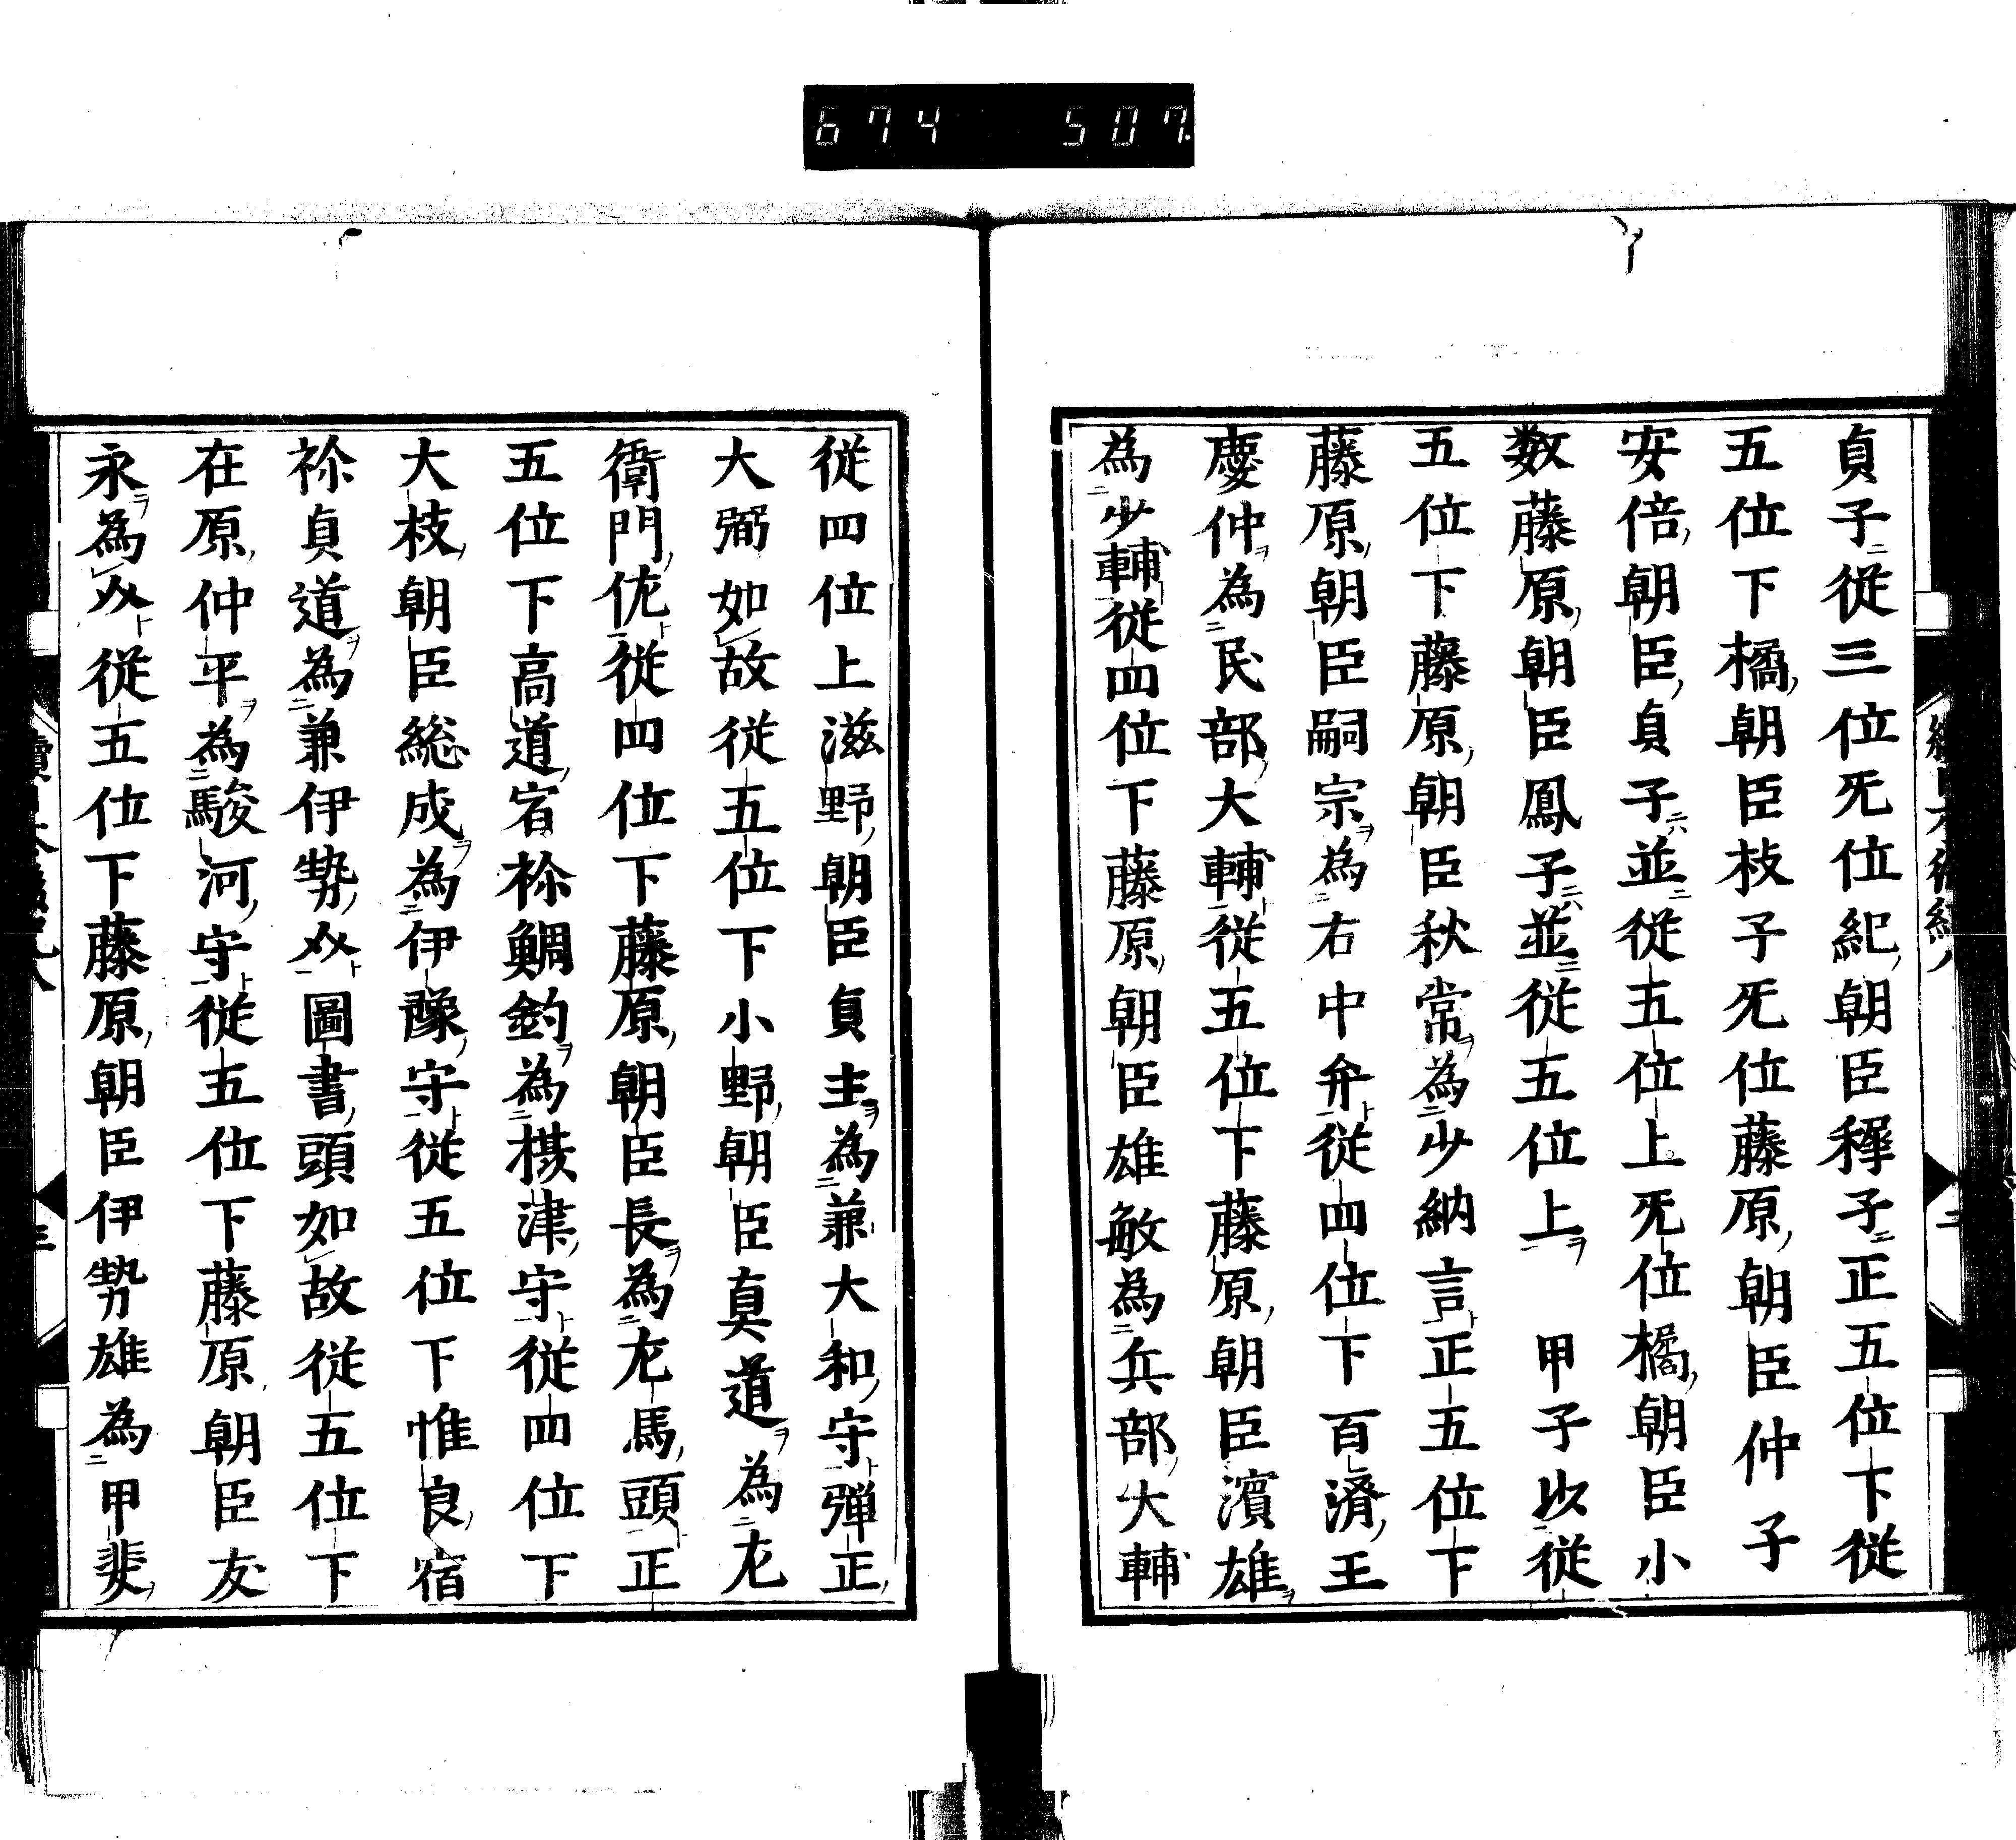 674 507
貞子従三位旡位紀朝臣稺子正五位下従
五位下橘朝臣枝子旡位藤原朝臣仲子
安倍朝臣貞子並従五位上旡位橘朝臣小
数藤原朝臣鳳子並従五位上　甲子以従
五位下藤原朝臣秋常為少納言正五位下
藤原朝臣嗣宗為右中弁従四位下百濟王
慶仲為民部大輔従五位下藤原朝臣濱雄
為少輔従四位下藤原朝臣雄敏為兵部大輔
従四位上滋野朝臣貞主為兼大和守弾正
大弼如故従五位下小野朝臣真道為左
衛門佐従四位下藤原朝臣長為左馬頭正
五位下高道宿祢鯛釣為摂津守従四位下
大枝朝臣総成為伊豫守従五位下惟良宿
祢貞道為兼伊勢介圖書頭如故従五位下
在原仲平為駿河守従五位下藤原朝臣友
永為介従五位下藤原朝臣伊勢雄為甲斐
三